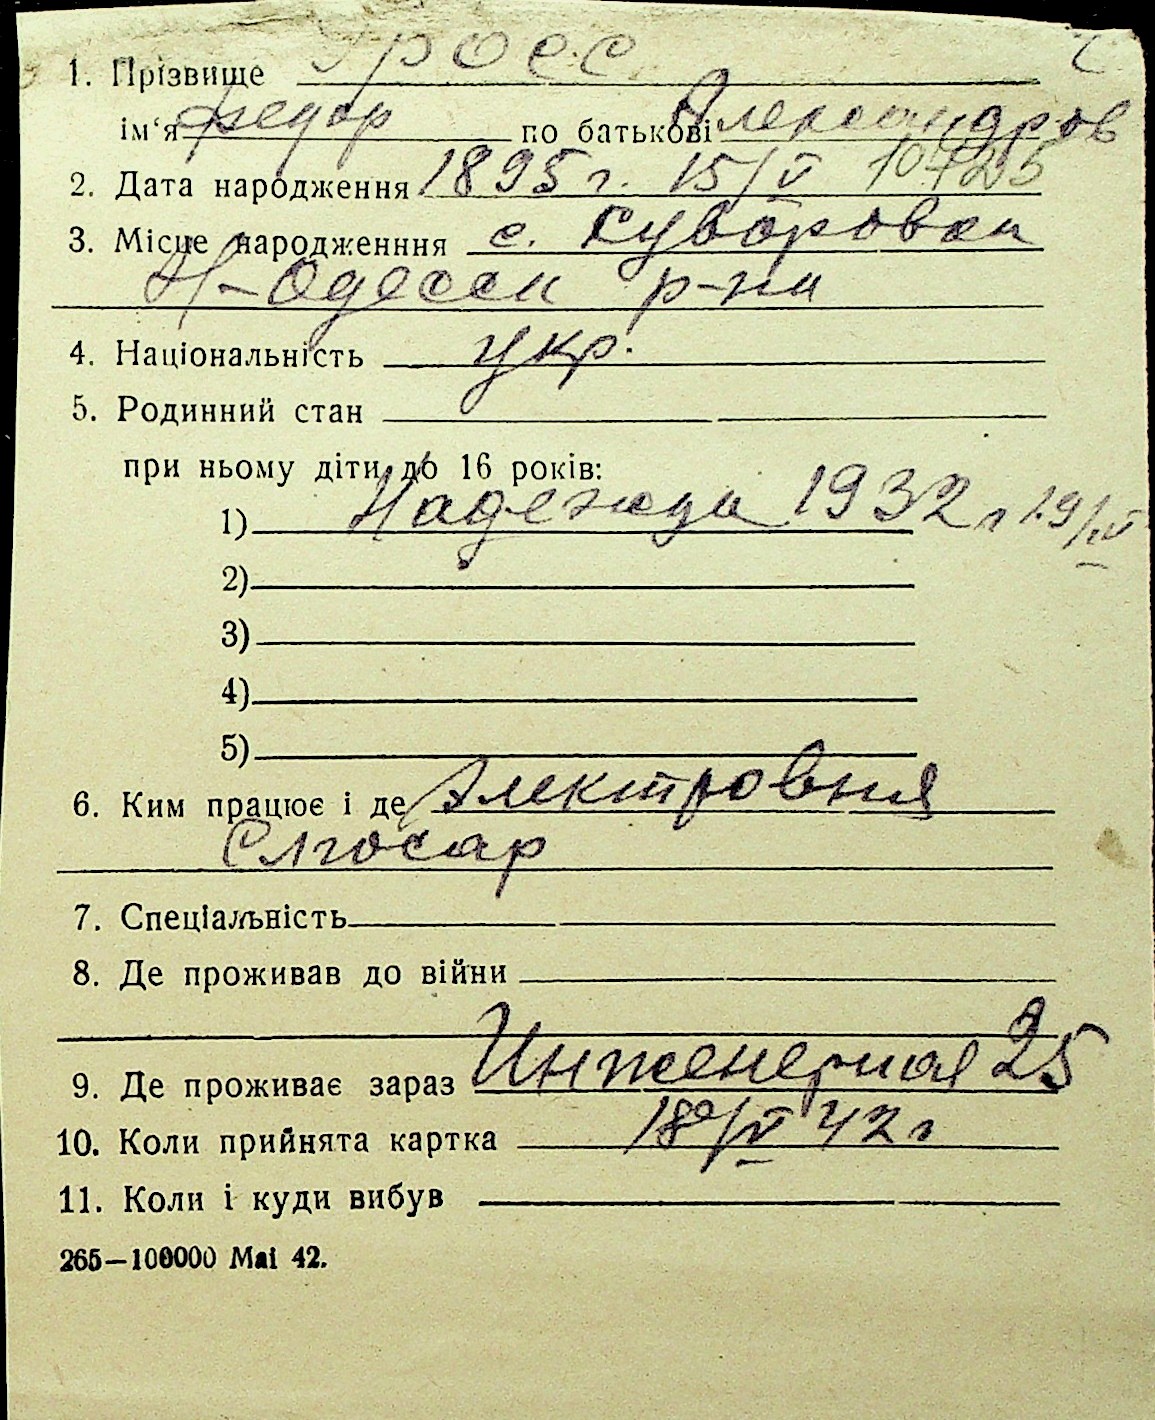 1. Прізвище Гросс
ім'я Федор по батькові Александров
2. Дата народження 1895 г. 15/V 10725
3. Місце народженння с. Суворовка
Н-Одесск р-на
4. Національність укр.
5. Родинний стан
при ньому діти до 16 років:
1) Надежда 1932 г 19/IV
2)
3)
4)
5)
6. Ким працює і де Электровня
Слюсар
7. Спеціальність
8. Де проживав до війни
9. Де проживає зараз Инженерная 25
10. Коли прийнята картка 18/V 42 г
11. Коли і куди вибув
265—100000 Mai 42.